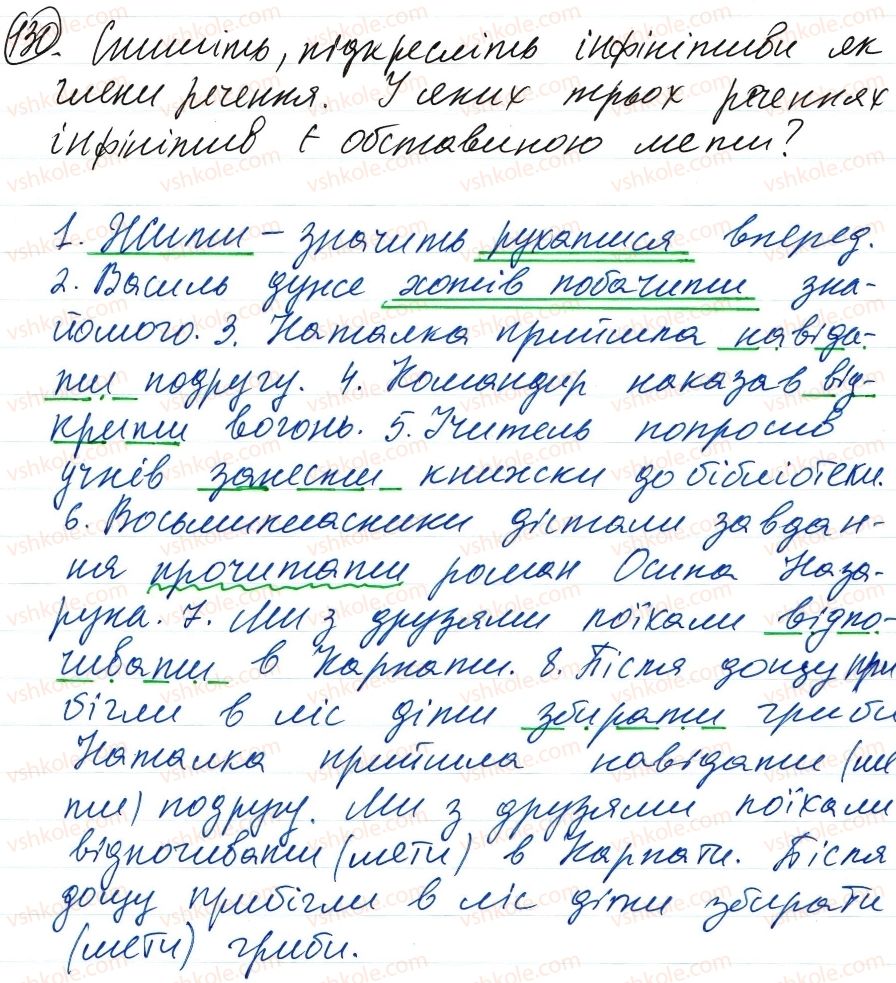 130. Спишіть, підкресліть інфінітиви як
члени речення. У яких трьох реченнях
інфінітив є обставиною мети?
1. Жити – значить рухатися вперед.
2. Василь дуже хотів побачити зна-
йомого. 3. Наталка прийшла навіда-
ти подругу. 4. Командир наказав від-
крити вогонь. 5. Учитель попросив
учнів занести книжки до бібліотеки.
6. Восьмикласники дістали завдан-
ня прочитати роман Осипа Наза-
рука. 7. Ми з друзями поїхали відпо-
чивати в Карпати. 8. Після дощу при
бігли в ліс діти збирати гриби
Наталка прийшла навідати (ме
ти) подругу. Ми з друзями поїхали
відпочивати (мети) в Карпати. Після
дощу прибігли в ліс діти збирати
(мети) гриби.